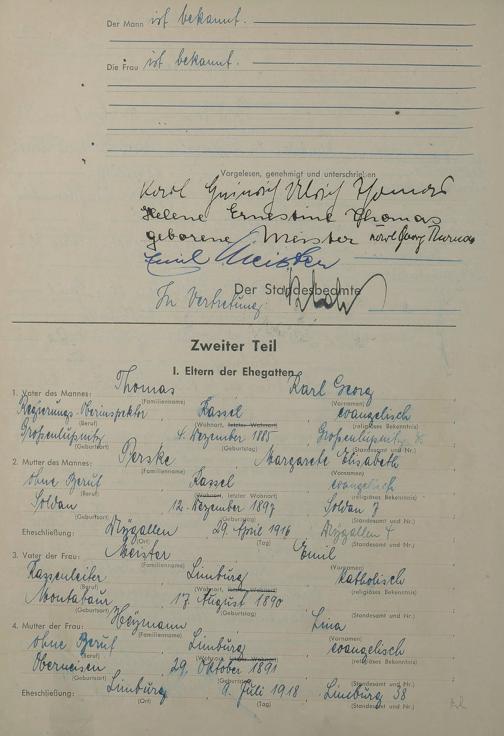 Der Mann ist bekannt.
Die Frau ist bekannt.
Vorgelesen, genehmigt und unterschrieben
Karl Heinrich Ulrich Thomas
Helene Ernestine Thomas
geborene Meister Karl Georg Thomas
Emil Meister
Der Standesbeamte
In Vertretung
Zweiter Teil
I. Eltern der Ehegatten
1. Vater des Mannes: Thomas Karl Georg
(Familienname) (Vornamen)
Regierungs-Oberinspektor, Kassel evangelisch
(Beruf) (Wohnort, letzter Wohnort) (religiöses Bekenntnis)
Großenlupnitz 4. Dezember 1885 Großenlupnitz
(Geburtsort) (Geburtstag) (Standesamt und Nr.)
2. Mutter des Mannes: Perske Margarete Elisabeth
(Familienname) (Vornamen)
ohne Beruf Kassel evangelisch
(Beruf) (Wohnort, letzter Wohnort) (religiöses Bekenntnis)
Soldau 12. Dezember 1897 Soldau 7
(Geburtsort) (Geburtstag) (Standesamt und Nr.)
Eheschließung: 29. April 1916
(Ort) (Tag) (Standesamt und Nr.)
3. Vater der Frau: Meister Emil
(Familienname) (Vornamen)
Kassenleiter Limburg katholisch
(Beruf) (Wohnort, letzter Wohnort) (religiöses Bekenntnis)
Montabaur 17. August 1890
(Geburtsort) (Geburtstag) (Standesamt und Nr.)
4. Mutter der Frau: Heymann Lina
(Familienname) (Vornamen)
ohne Beruf Limburg evangelisch
(Beruf) (Wohnort, letzter Wohnort) (religiöses Bekenntnis)
Oberneisen 29. Oktober 1891
(Geburtsort) (Geburtstag) (Standesamt und Nr.)
Eheschließung: Limburg 9. Juli 1918 Limburg 38
(Ort) (Tag) (Standesamt und Nr.)